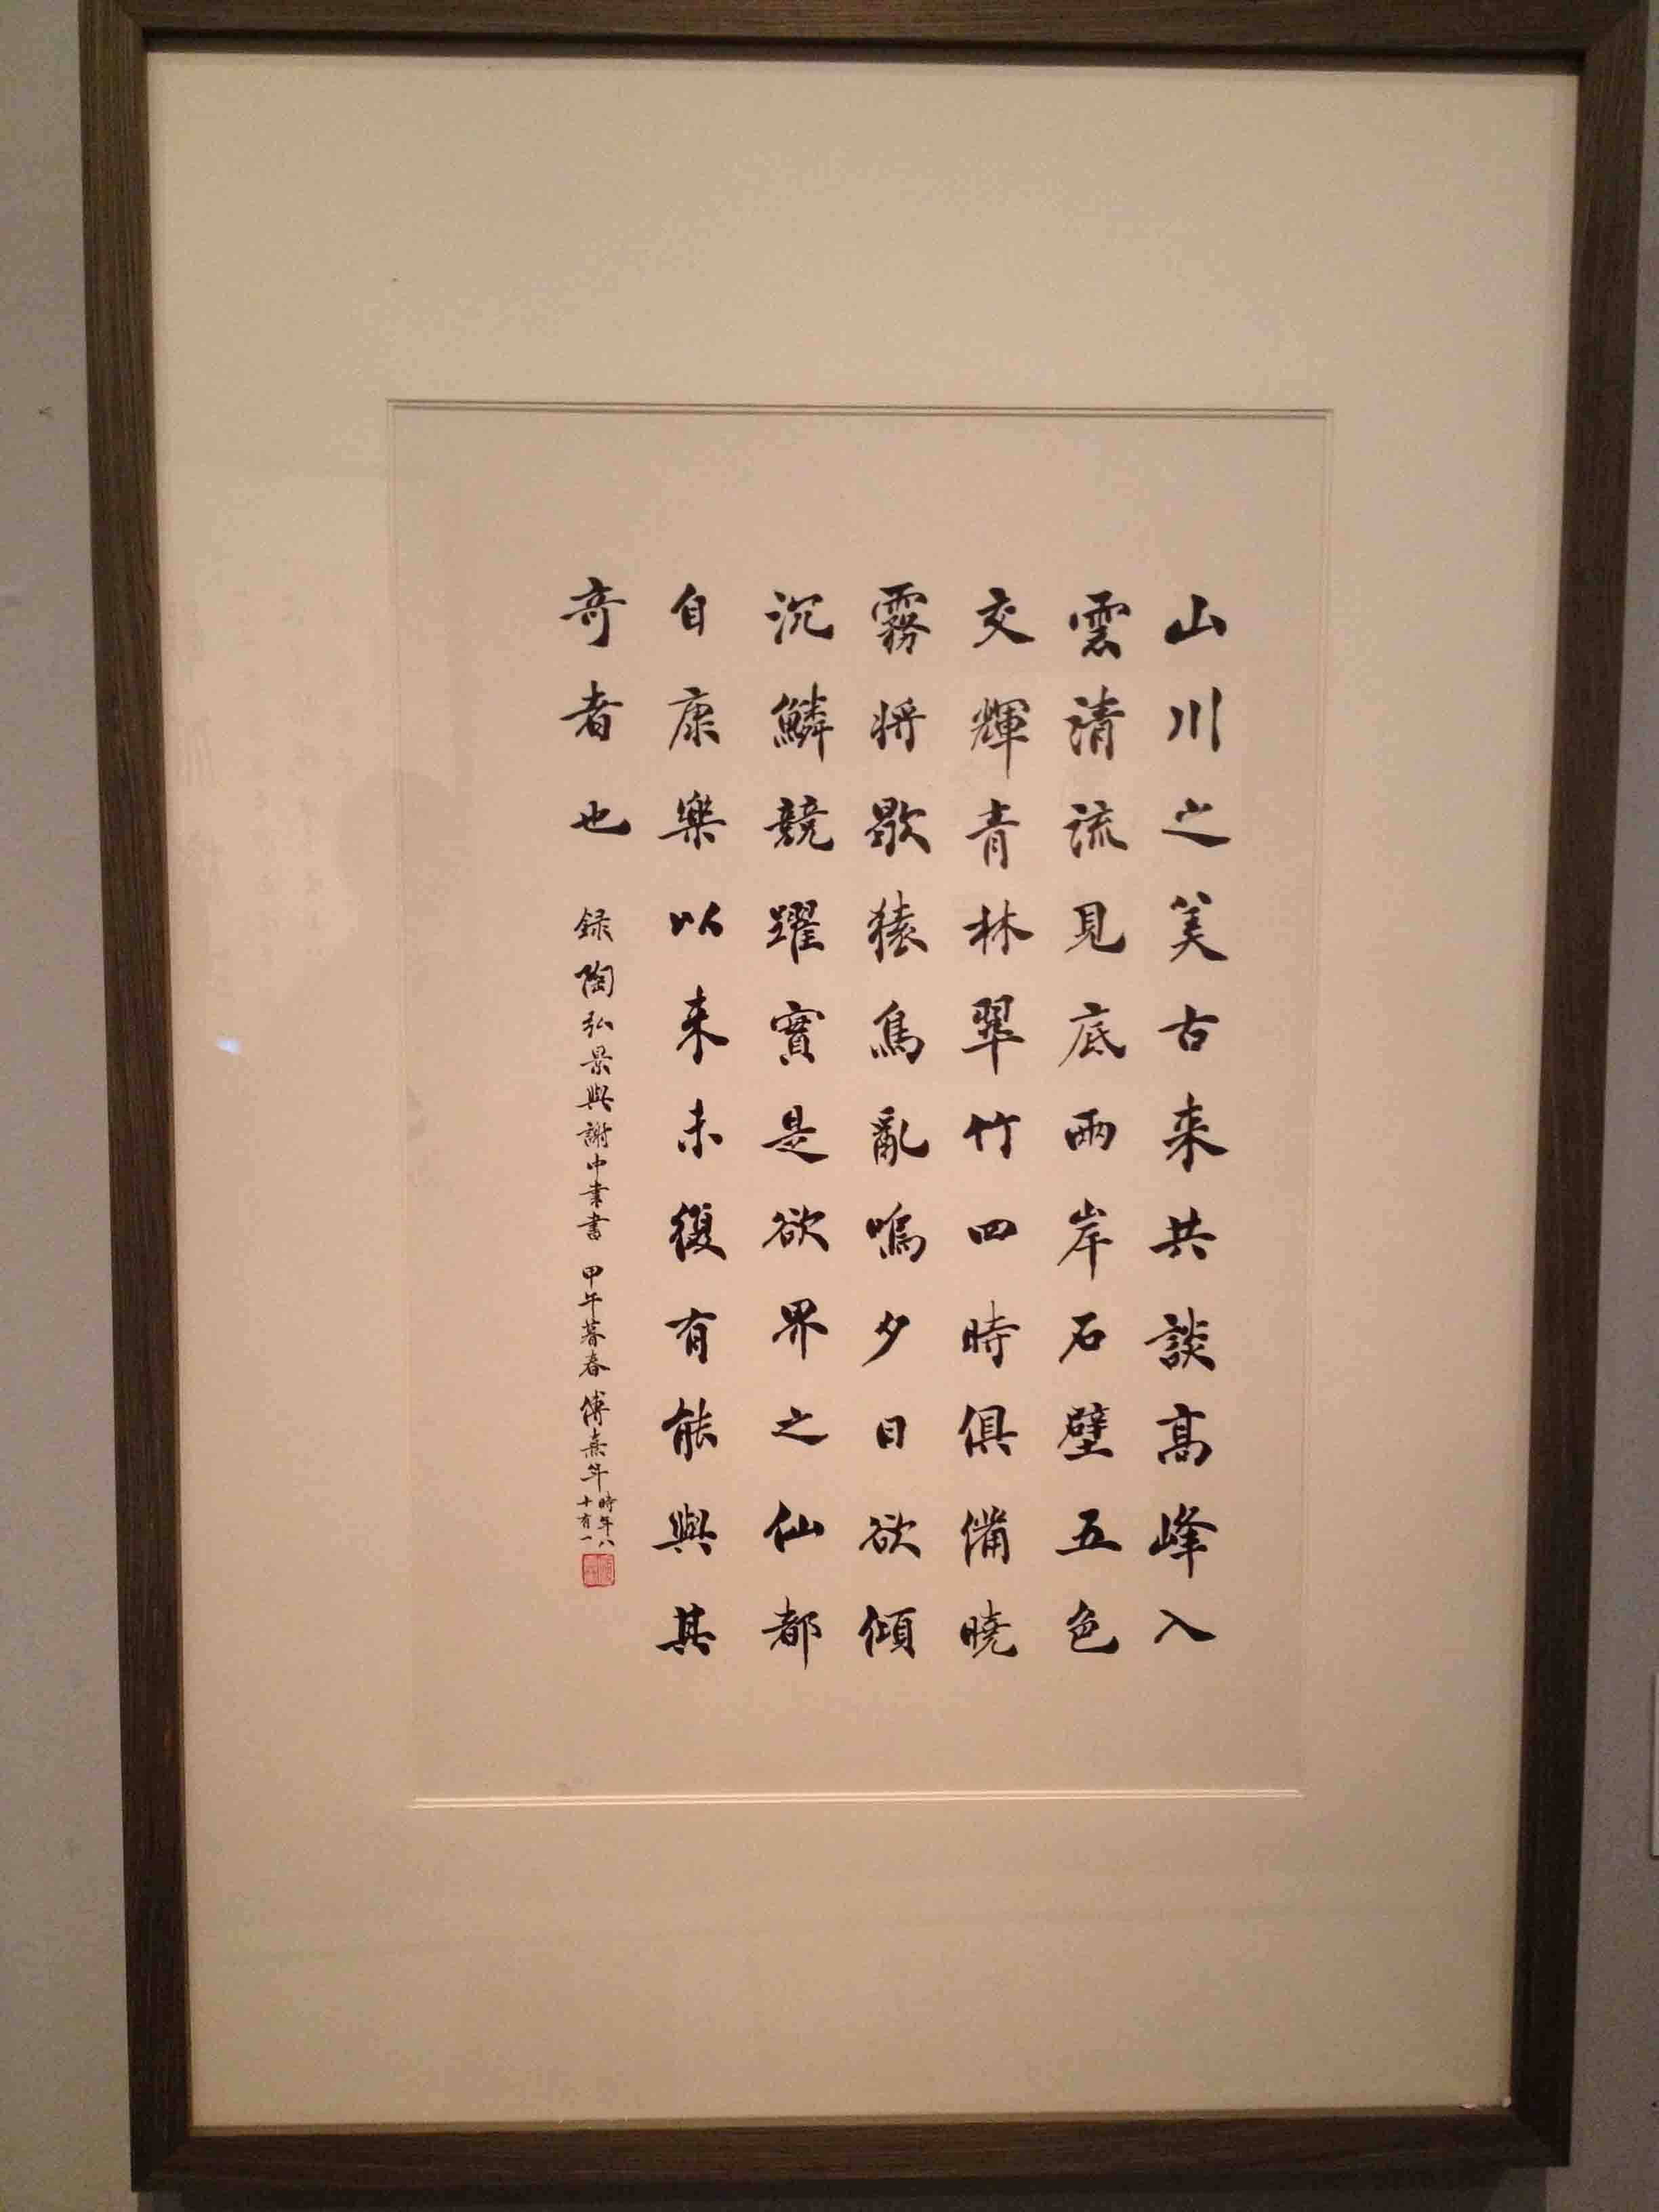 山川之美古来共談高峰入
雲清流見底兩岸石壁五色
交輝青林翠竹四時俱備曉
霧將歇猿鳥亂鳴夕日欲傾
沉鱗競躍實是欲界之仙都
自康樂以来未復有能與其
奇者也
録陶弘景與謝中書書 甲午暮春 傅熹年
時年八
十有一